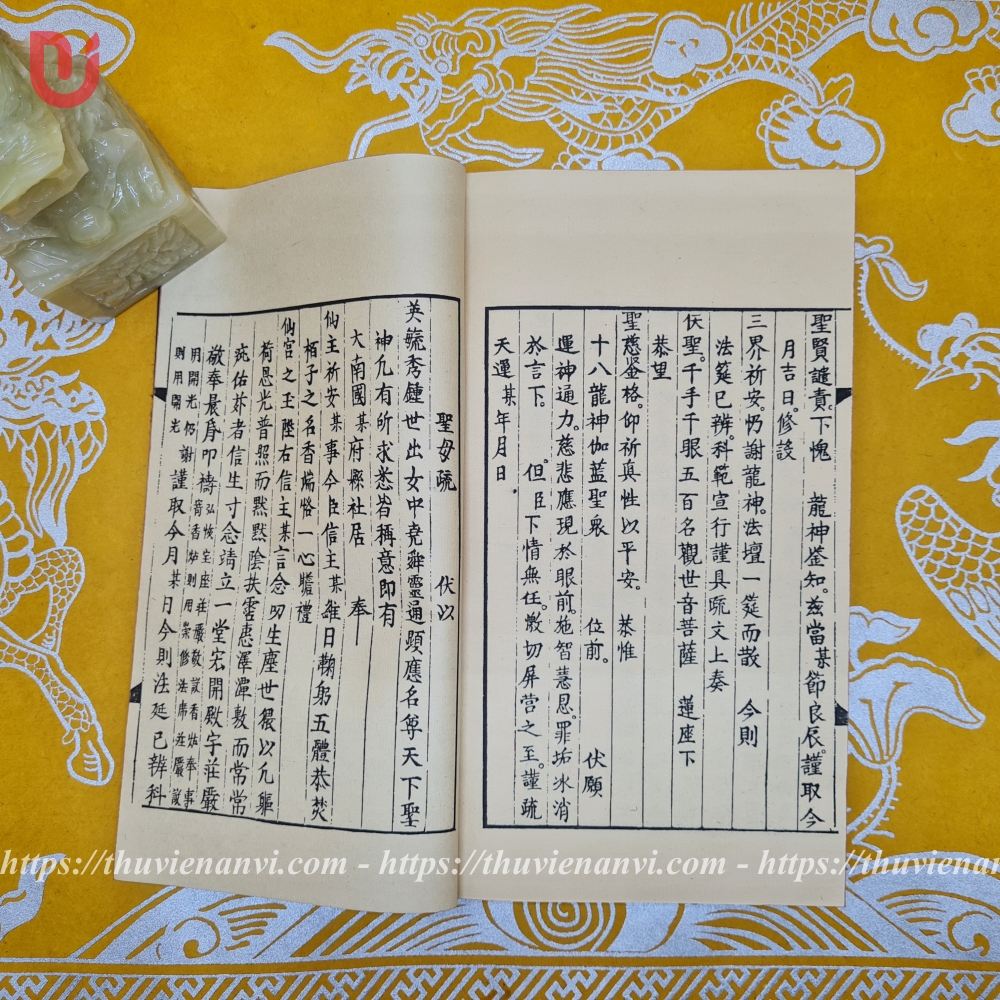 聖賢譴責。下愧　龍神鉴知。兹當某節良辰。謹取今
月吉日。修設
三界祈安。仍謝龍神。法壇一筵而散　今則
法筵已辨。科範宣行謹具疏文上奏
伏聖。千手千眼五百名觀世音菩薩　蓮座下
恭望
聖慈鉴格。仰祈真性以平安。　恭惟
十八龍神伽藍聖衆　位前。　伏願
運神通力。慈悲應現於眼前。施智慧恩。罪垢冰消
於言下。　但臣下情無任。激切屏营之至。謹疏
天運某年月日
聖母疏　伏以
英毓秀鍾世出女中堯舜靈通顕應名尊天下聖
神凢有所求悉皆稱意即有
大南國某府縣社居　奉
仙主祈安某事今臣信主某維日鞠躬五體恭焚
栢子之名香端恪一心瞻禮
仙宮之玉陛右信主某言念叨生塵世猥以凢軀
荷恩光普照而黙黙陰扶霑惠澤潭敷而常常
庇佑茲者信生寸念靖立一堂宏開殿宇莊嚴
敬奉晨昏叩禱 弘恢宝座莊嚴敬設香炉奉事
用開光仍謝 音香炉則用崇修法席莊嚴設
則用開光 謹取今月某日今則法筵已辨科
https://thuvienanvi.com - https://thuvienanvi.com - https://thuvienanvi.com